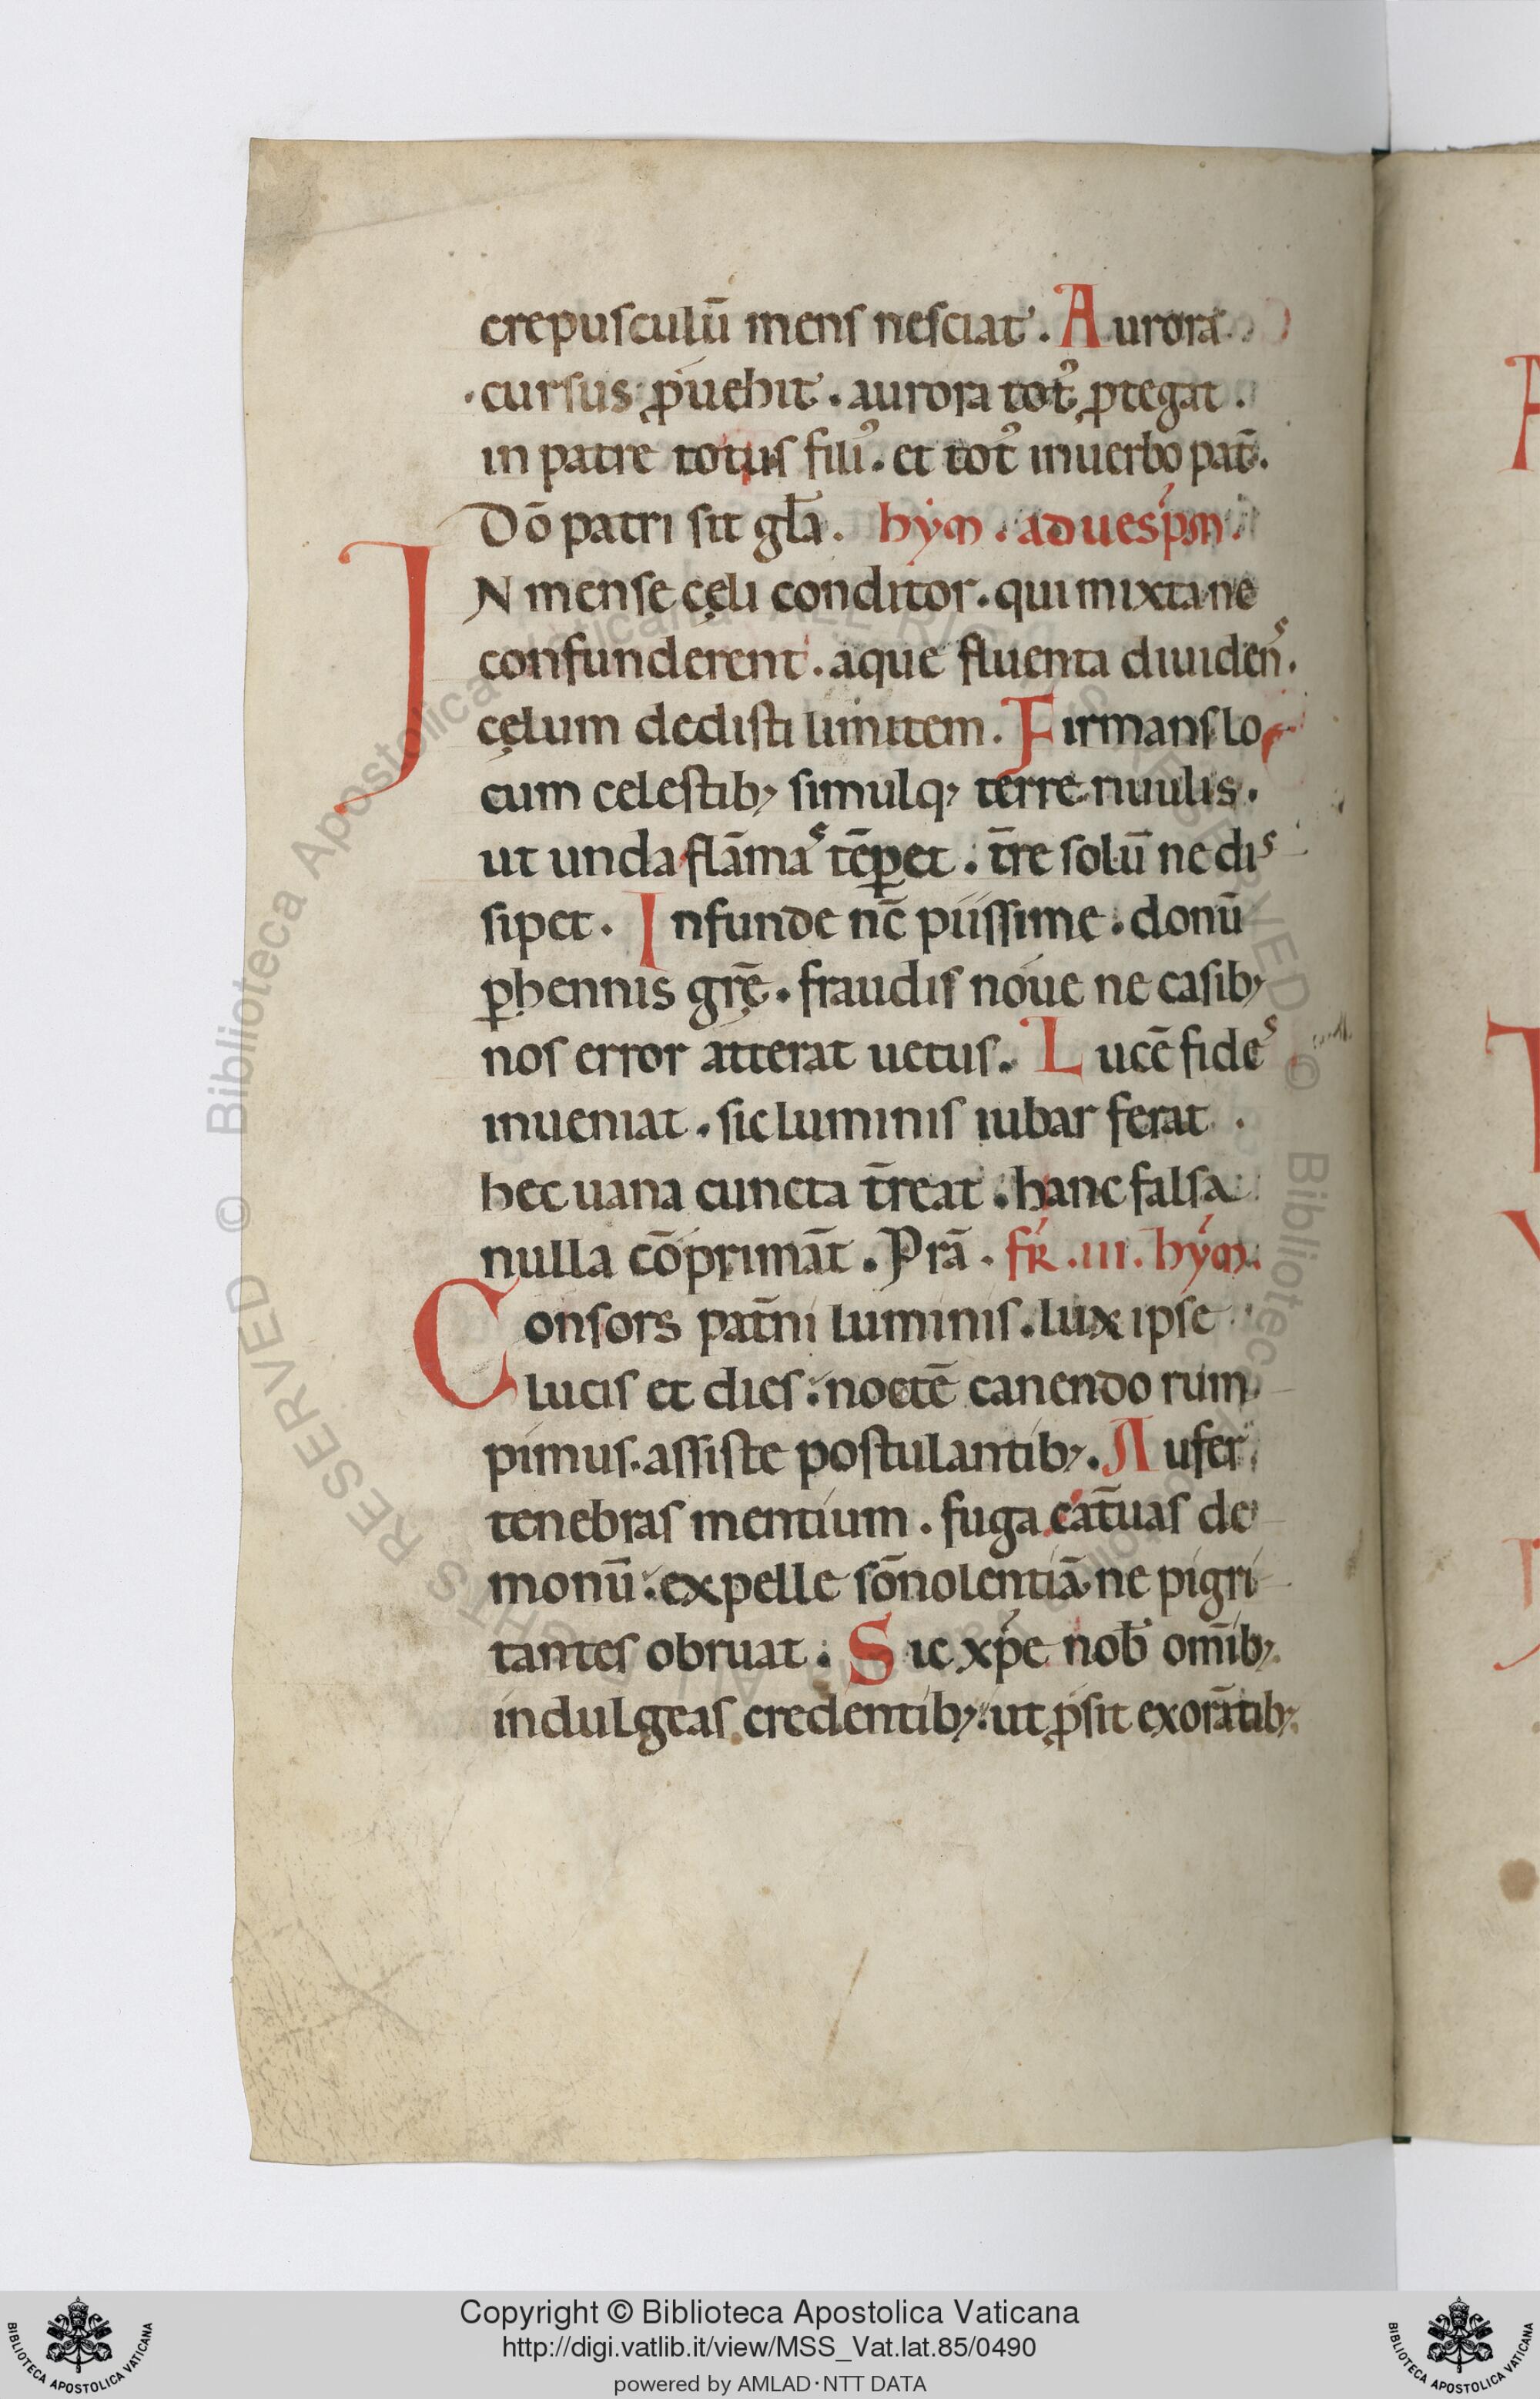 crepusculū mens nesciat. Aurora
cursus ꝓuehit. aurora totꝰ ꝓtegat.
in patre totus filiꝰ. et totꝰ inuerbo pat̄.
Dō patri sit gl̄a. hym̄. aduesp̄m.
IN mense cęli conditor. qui mixta ne
confunderent. aque fluenta diuidens.
cęlum dedisti limitem. Firmans lo
cum celestibꝫ simulqꝫ terre riuulis.
ut unda flāmas tēꝑet. t̄re solū ne dis
sipet. Infunde nc̄ piissime. donū
ꝑhennis gr̄ę. fraudis noue ne casibꝫ
nos error atterat uetus. Lucē fides
inueniat. sic luminis iubar ferat.
hec uana cuncta t̄reat. hanc falsa
nulla cōprimāt. Prā. fr̄. III. hym̄.
Consors pat̄ni luminis. lux ipse
lucis et dies: noctē canendo rum
pimus. assiste postulantibꝫ. Aufer
tenebras mentium. fuga cat̄uas de
monū: expelle sōnolentiā ne pigri
tantes obruat. Sic xp̄e nob̄ om̄ibꝫ
indulgeas credentibꝫ: ut ꝓsit exorātibꝫ
© Biblioteca Apostolica Vaticana ALL RIGHTS RESERVED
Copyright © Biblioteca Apostolica Vaticana
http://digi.vatlib.it/view/MSS_Vat.lat.85/0490
powered by AMLAD·NTT DATA
BIBLIOTECA APOSTOLICA VATICANA
BIBLIOTECA APOSTOLICA VATICANA